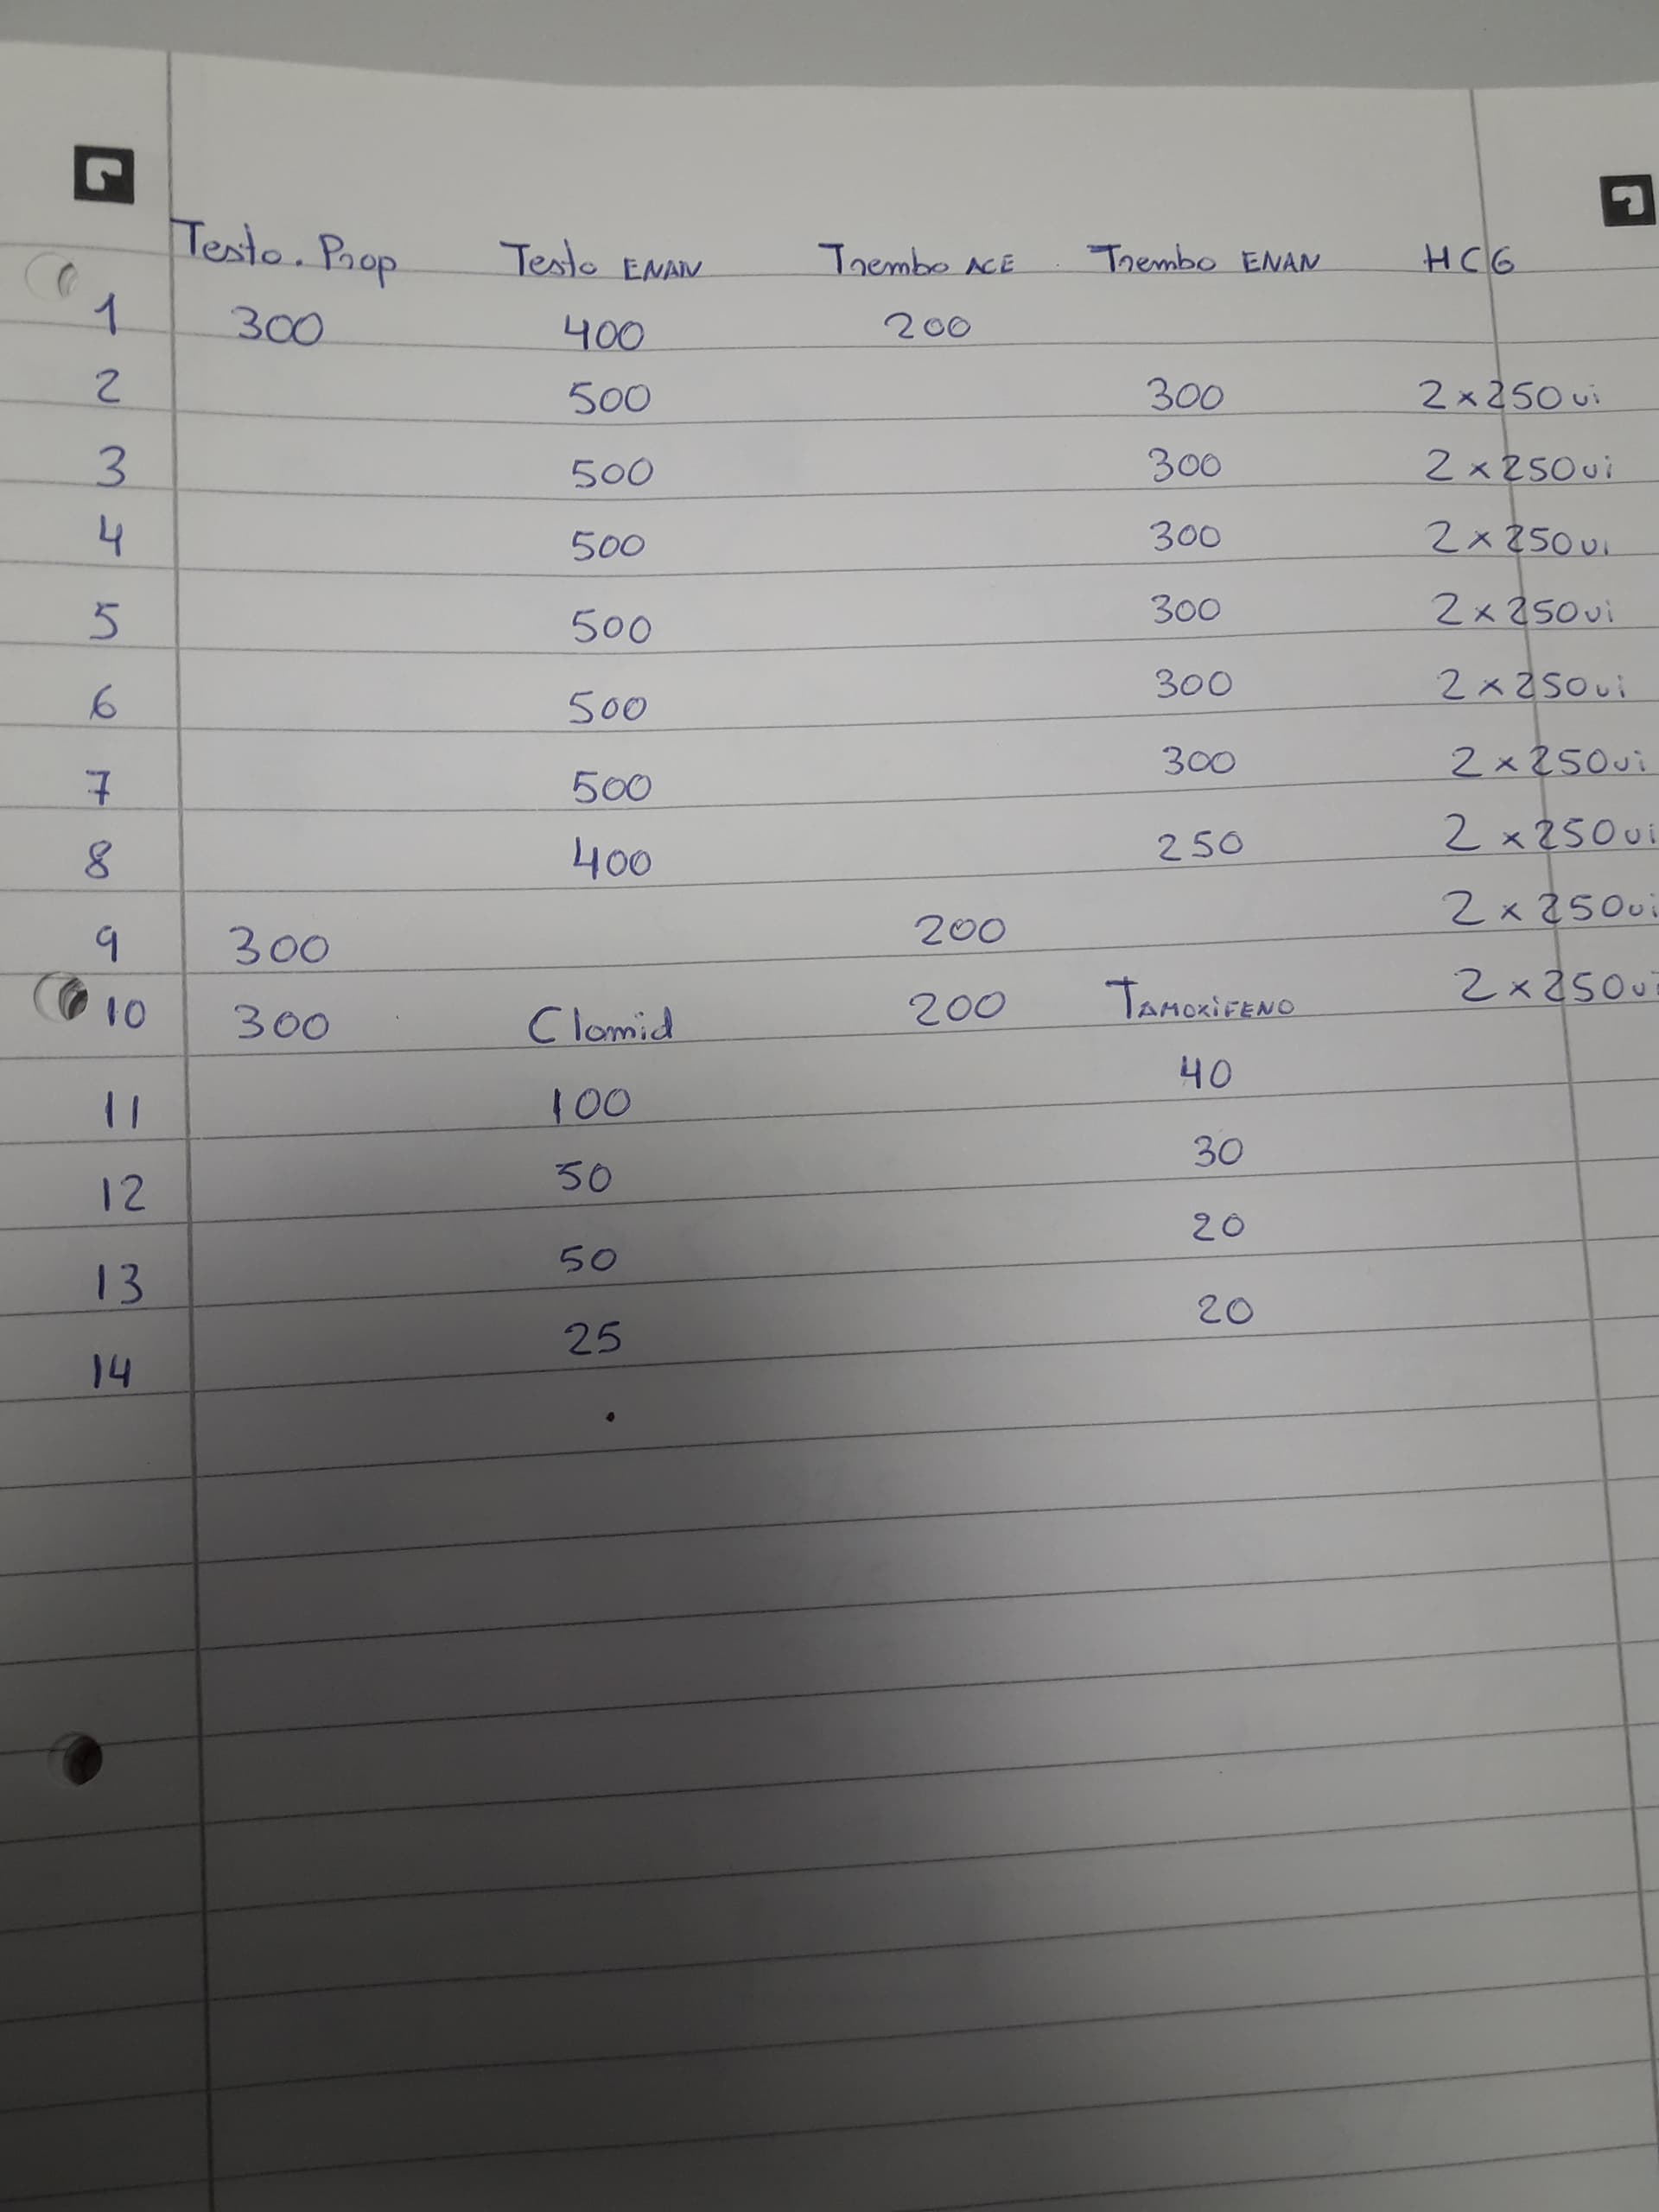 Testo. Prop Testo ENAN Trembo ACE Trembo ENAN HCG
1 300 400 200
2 500 300 2x250ui
3 500 300 2x250ui
4 500 300 2x250ui
5 500 300 2x250ui
6 500 300 2x250ui
7 500 300 2x250ui
8 400 250 2x250ui
9 300 200 2x250ui
10 300 Clomid 200 TAMOXiFENO 2x250ui
11 100 40
12 50 30
13 50 20
14 25 20